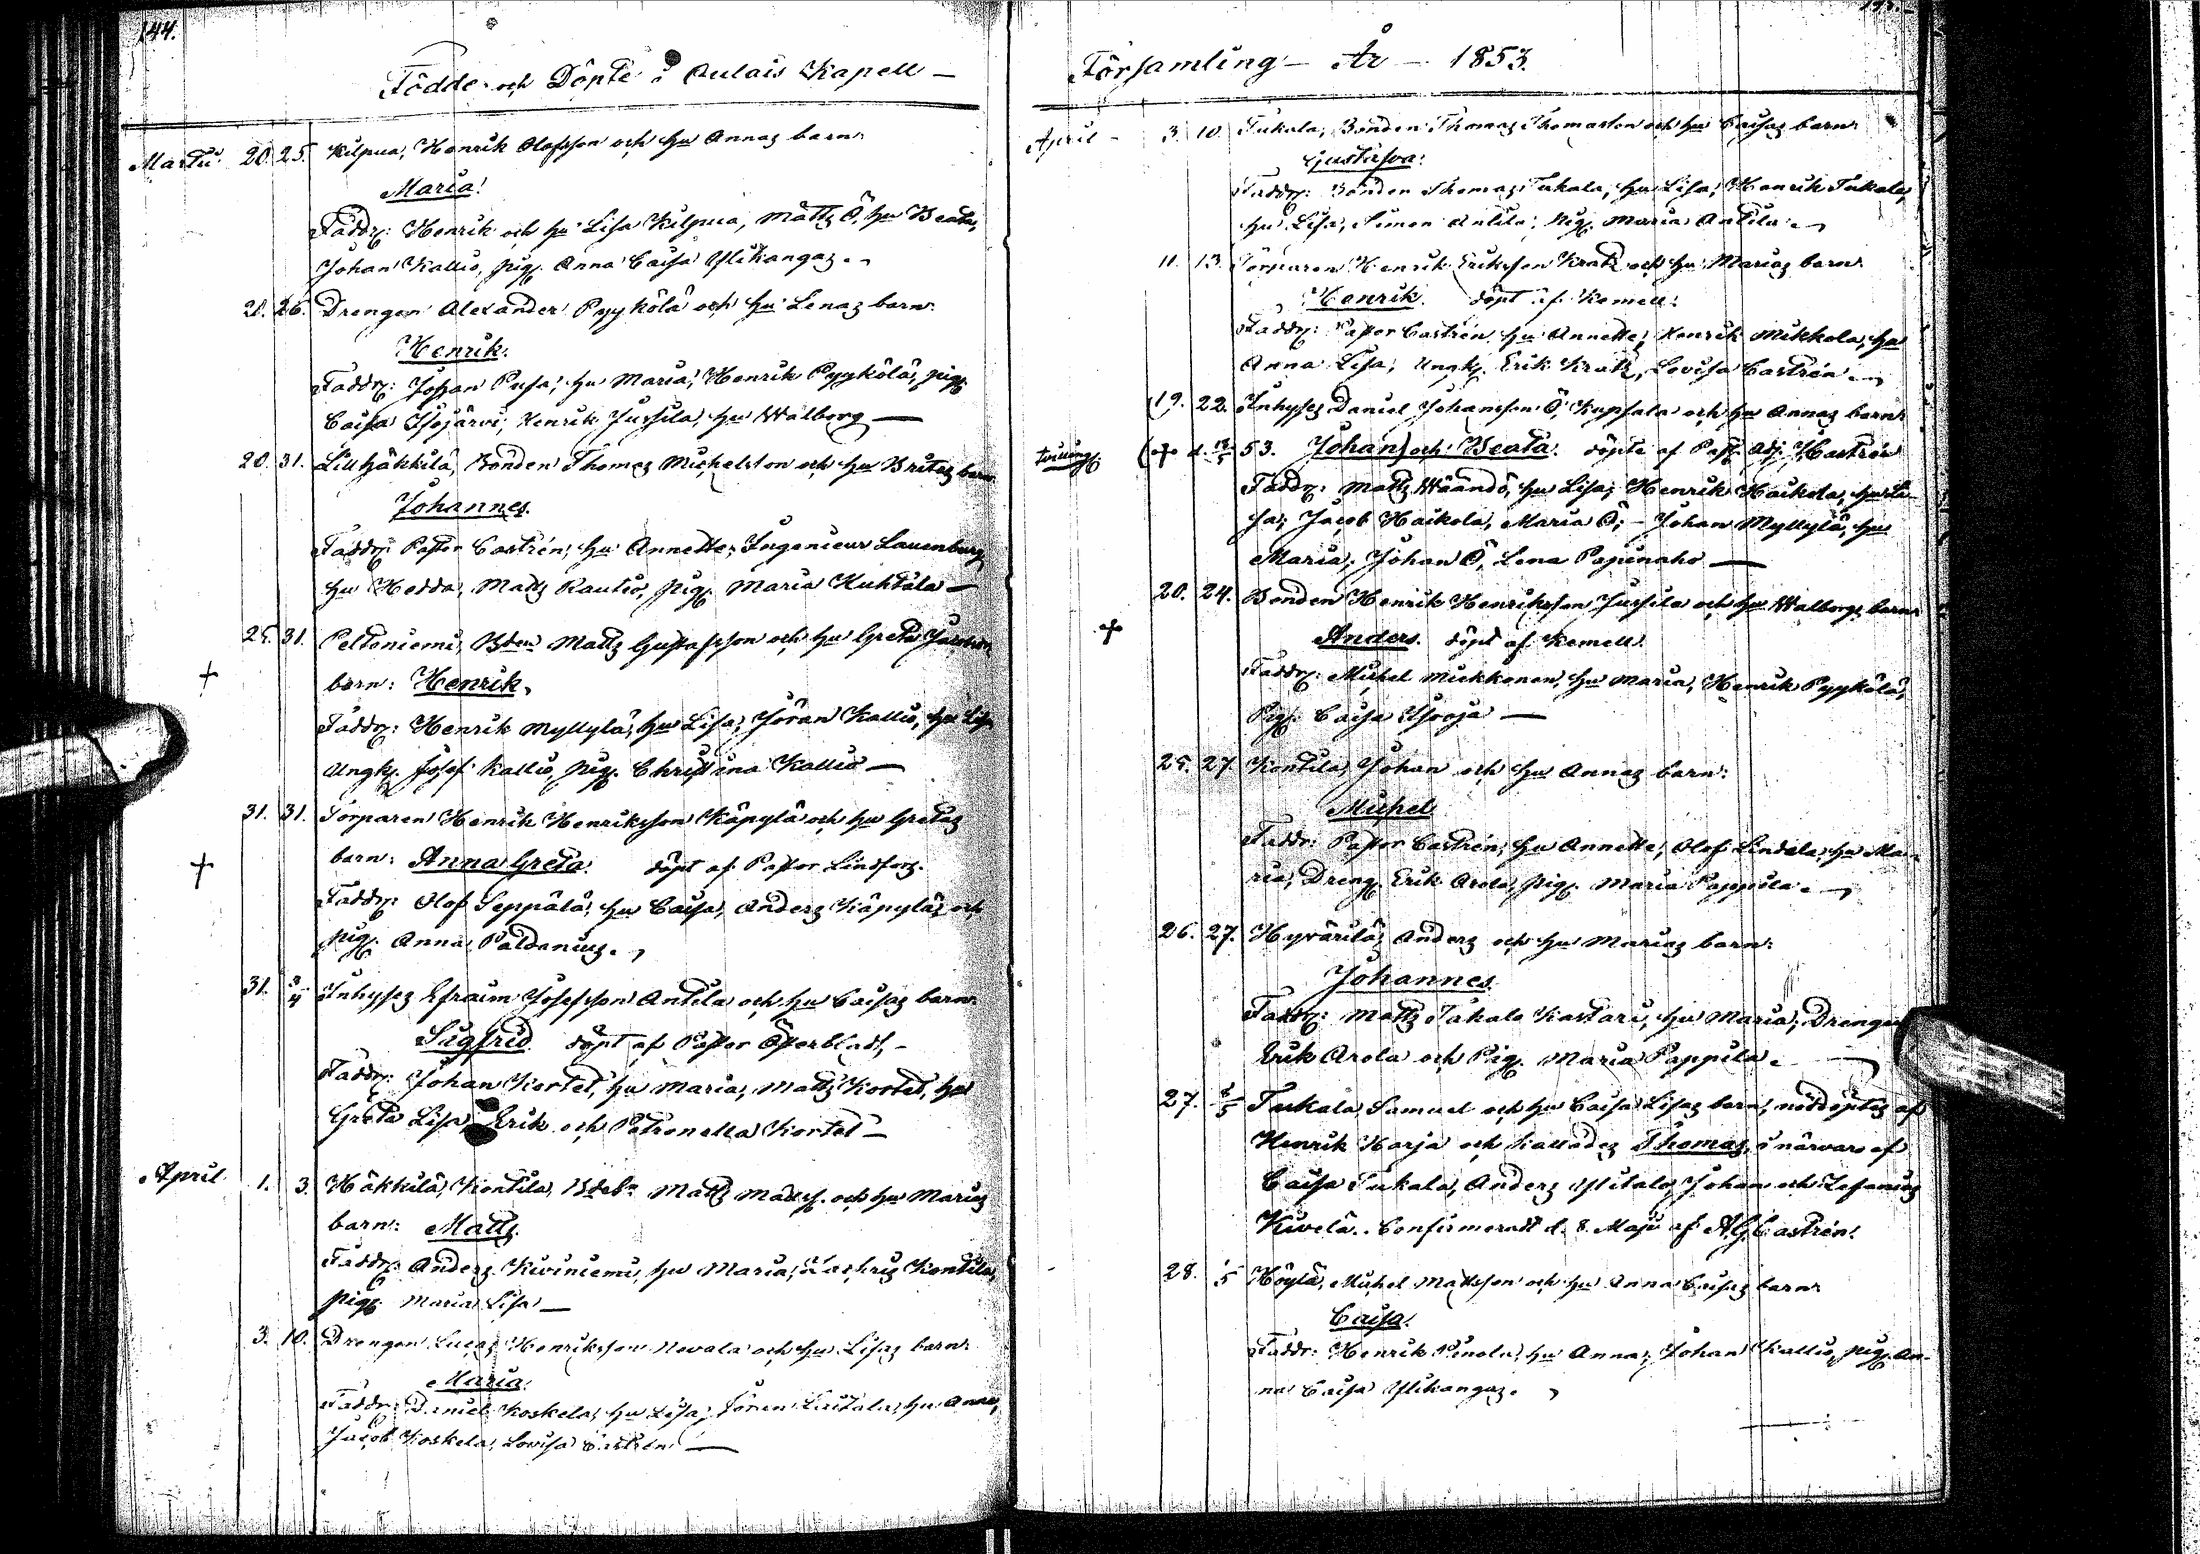 144.
Födde och Döpte i Aulais Kapell –
Martii 20. 25. Kilpua, Henrik Olofsson och hu Annas barn:
Maria.
Faddr: Henrik och hu Lisa Kilpua, Matts d:o, hu Beata,
Johan Kallio, pig. Anna Caisa Ylikangas.
20. 26. Drengen Alexander Pyykölä och hu Lenas barn:
Henrik.
Faddr: Johan Pusa, hu Maria, Henrik Pyykölä, pig.
Caisa Isojärvi, Henrik Jussila, hu Walborg –
20. 31. Lill Häkkilä, Bonden Thomas Michelsson och hu Britas barn
Johannes.
Faddr: Pastor Castrén, hu Annette, Ingenieur Lauenburg
hu Hedda, Matts Rautio, pig. Maria Kuhtala –
25. 31. Peltoniemi, Bden Matts Gustafsson och hu Greta
+ barn: Henrik.
Faddr: Henrik Myllylä, hu Lisa, Jöran Kallio, hu Lisa
Ungk. Josef Kallio, pig. Christina Kallio –
31. 31. Torparen Henrik Henriksson Käpylä och hu Gretas
+ barn: Anna Greta. döpt af Pastor Lindfors.
Faddr: Olof Seppälä, hu Caisa, Anders Käpylä och
pig. Anna Paldanius.
31. 3/4 Inhyses Efraim Josefsson Antila och hu Caisas barn
Sigfrid döpt af Pastor Österbladh, –
Faddr: Johan Kortet, hu Maria, Matts Kortet, hu
Greta Lisa, Erik och Petronella Kortet –
April 1. 3. Häkkilä, Kontila, Matts Mattss. och hu Marias
barn: Matts.
Faddr: Anders Kiviniemi, hu Maria, Zachris Kontila,
pig. Maria Lisa –
3. 10. Drengen Lucas Henriksson Nevala och hu Lisas barn:
Maria.
Faddr: Daniel Koskela, hu Lisa, Jöran hu Anna,
Jacob Koskela, Lovisa Castrén –
Församling – År – 1853.
April – 3. 10. Tukala, Bonden Thomas Thomasson och hu Caisas barn:
Gustafva.
Faddr: Bonden Thomas Tukala, hu Lisa, Henrik Tukala,
hu Lisa, Simon Antila, pig. Maria Antila.
11. 13. Torparen Henrik Eriksson Kratz och hu Marias barn
Henrik. döpt af Kemell.
Faddr: Pastor Castrén, hu Annette, Henrik Mikkola, hu
Anna Lisa, Ungk. Erik Kratz, Lovisa Castrén.
19. 22. Inhyses Daniel Johansson d:o Kupsala och hu Annas barn:
tvilling. 53. Johan och Beata. döpte af Past. Adj. Hastrén
Faddr: Matts Wäändö, hu Lisa, Henrik Haikola, hu Li-
sa, Jacob Haikola, Maria d:o, – Johan Myllylä, hu
Maria, Johan d:o, Lena Papinaho –
20. 24. Bonden Henrik Henriksson Jussila och hu Walborgs barn
+ Anders. döpt af Kemell.
Faddr: Michel Mickkonen, hu Maria, Henrik Pyykölä,
Pig. Caisa Isooja –
25. 27. Kontila, Johan och hu Annas barn:
Michel
Faddr: Pastor Castrén, hu Annette, Olof Lindela, hu Ma-
ria, Dreng. Erik Arola, pig. Maria Pappila.
26. 27. Hyvärilä, Anders och hu Marias barn:
Johannes.
Faddr: Matts Takalo Kastari, hu Maria, Drengen
Erik Arola och Pig. Maria Pappila.
27. Tukala Samuel och hu Caisa Lisas barn, nöddöptes af
Henrik Harja och kallades Thomas, i närvaro af
Caisa Tukala, Anders Ylitalo, Johan och Zefanias
Kivelä. Confirmeradt d. 8 Maji af A.G. Castrén.
28. 1/5 Höylä, Michel Mattsson och hu Anna Caisas barn:
Caisa.
Faddr: Henrik Pinola, hu Anna, Johan Kallio, pig. An-
na Caisa Ylikangas.